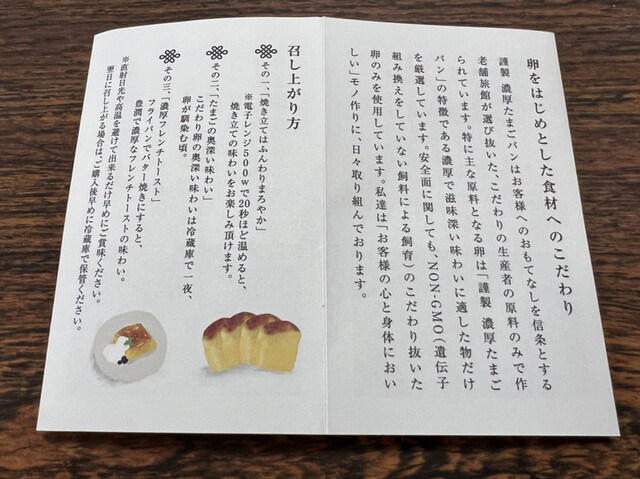 卵をはじめとした食材へのこだわり
謹製 濃厚たまごパンはお客様へのおもてなしを信条とする
老舗旅館が選び抜いた、こだわりの生産者の原料のみで作
られています。特に主な原料となる卵は「謹製 濃厚たまご
パン」の特徴である濃厚で滋味深い味わいに適した物だけ
を厳選しています。安全面に関しても、NON-GMO(遺伝子
組み換えをしていない飼料による飼育)のこだわり抜いた
卵のみを使用しています。私達は「お客様の心と身体におい
しい」モノ作りに、日々取り組んでおります。
召し上がり方
その一、「焼き立てはふんわりまろやか」
※電子レンジ500wで20秒ほど温めると、
焼き立ての味わいをお楽しみ頂けます。
その二、「たまごの奥深い味わい」
こだわり卵の奥深い味わいは冷蔵庫で一夜、
卵が馴染む頃。
その三、「濃厚フレンチトースト」
フライパンでバター焼きにすると、
豊潤で濃厚なフレンチトーストの味わい。
※直射日光や高温を避けて出来るだけ早めにご賞味ください。
翌日に召し上がる場合は、ご購入後早めに冷蔵庫で保管ください。